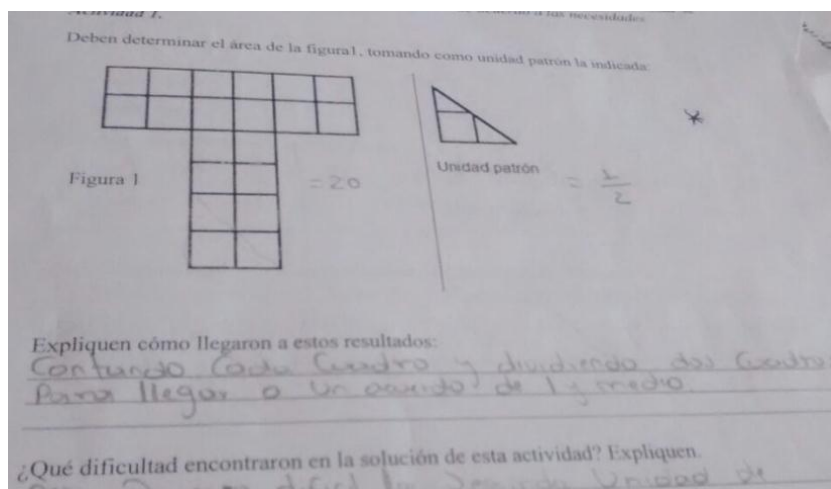 Actividad 1.
a las necesidades
Deben determinar el área de la figura1, tomando como unidad patrón la indicada:
Figura 1
= 20
Unidad patrón
= 1/2
Expliquen cómo llegaron a estos resultados:
Contando Cada Cuadro y dividiendo dos Cuadro
Para llegar a un acuerdo de 1 y medio
¿Qué dificultad encontraron en la solución de esta actividad? Expliquen.
Unidad de